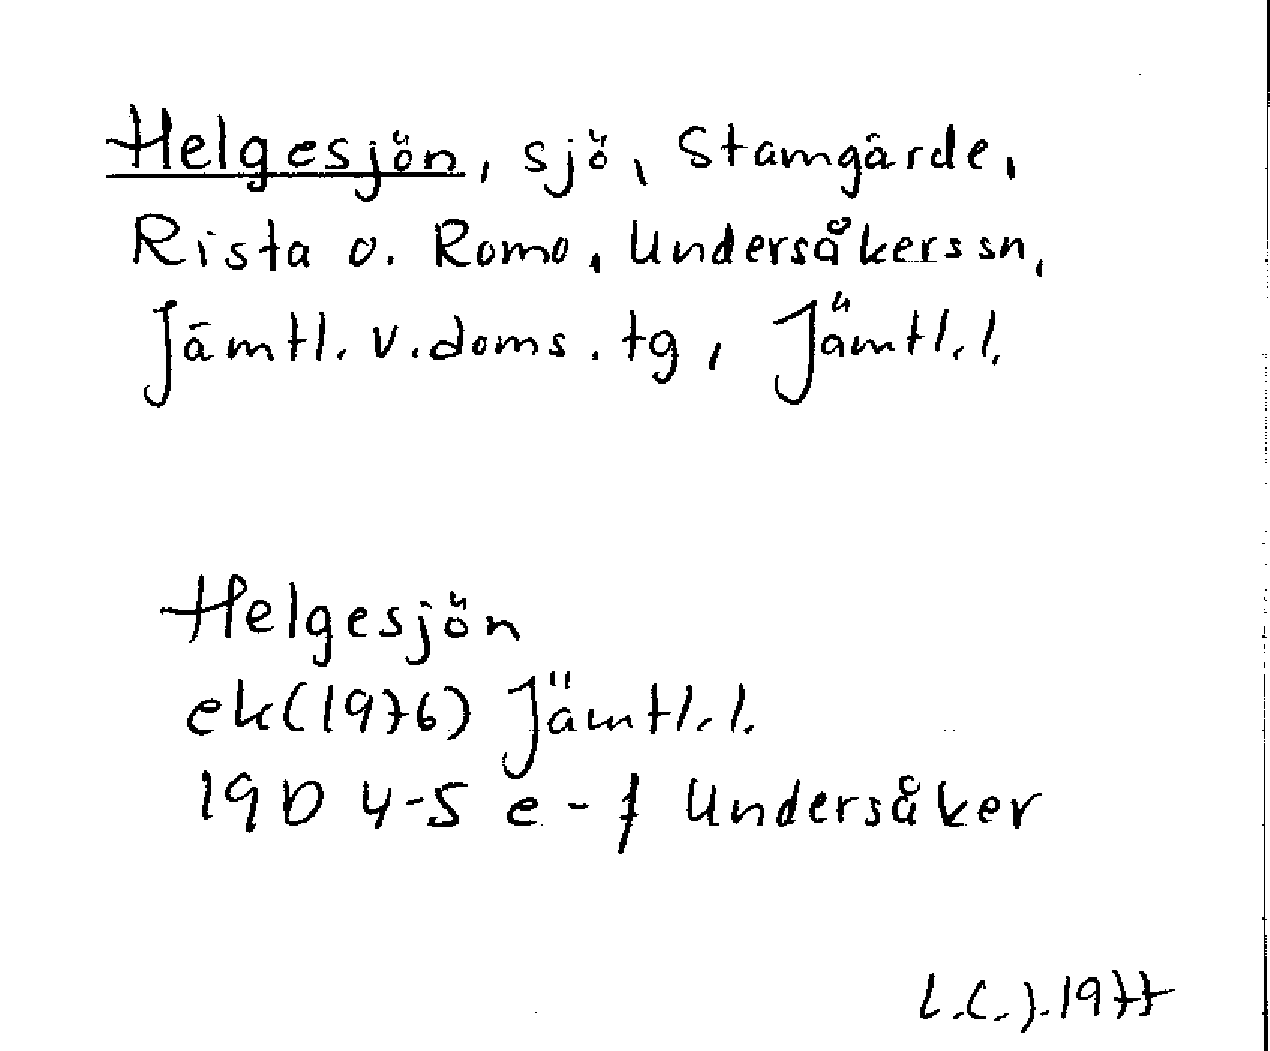 Helgesjön, sjö, Stamgärde,
Rista o. Romo, Undersåkers sn,
Jämtl. v. doms. tg, Jämtl. l.
Helgesjön
ek (1976) Jämtl. l.
19D 4-5 e-f Undersåker
L.C.J. 1977